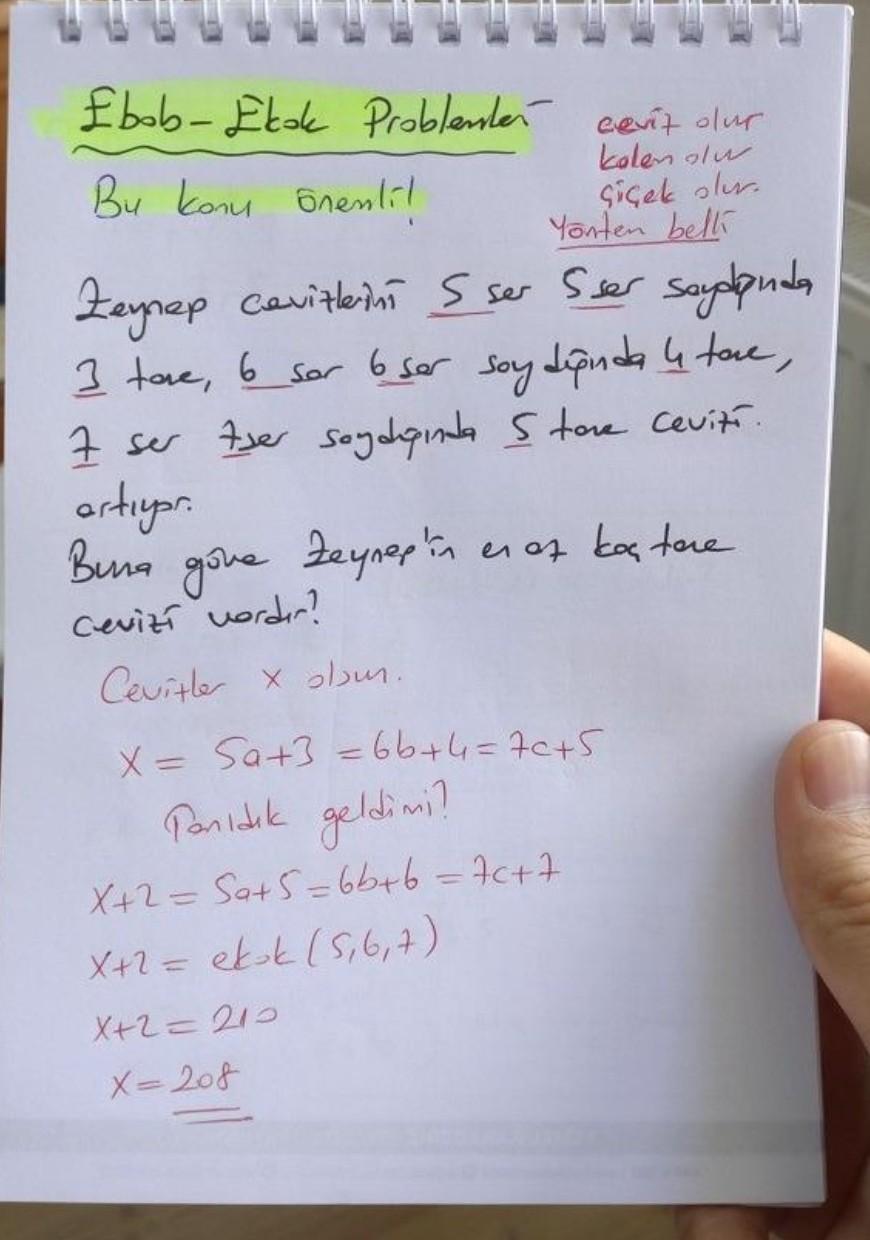 Ebob-Ekok Problemleri
Bu konu önemli!
ceviz olur
kalem olur
çiçek olur.
Yöntem belli
Zeynep cevizlerini 5 ser 5 ser saydığında
3 tane, 6 sar 6 sar saydığında 4 tane,
7 ser 7 ser saydığında 5 tane cevizi
artıyor.
Buna göre Zeynep'in en az kaç tane
cevizi vardır?
Cevizler x olsun.
x = 5a+3 = 6b+4 = 7c+5
Tanıdık geldimi?
x+2 = 5a+5 = 6b+6 = 7c+7
x+2 = ekok (5,6,7)
x+2 = 210
x = 208